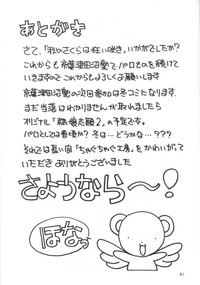 あとがき
さて、「別のさくらは狂い咲き」いかがでしたか?
これからも京葉津田沼塾でパロものを続けて
いきますので これからもよろしくお願いします
京葉津田沼塾の2回参加は冬コミになります。
まだ当落はわかりませんが取れましたら
オリジナル「 2」の予定です。
パロとしては春頃か? 冬は…どうかな…???
それでは長い間「ちゃぐちゃぐ工房」をかわいがって
いただき ありがとうございました
さようなら〜!
ほなっ
31